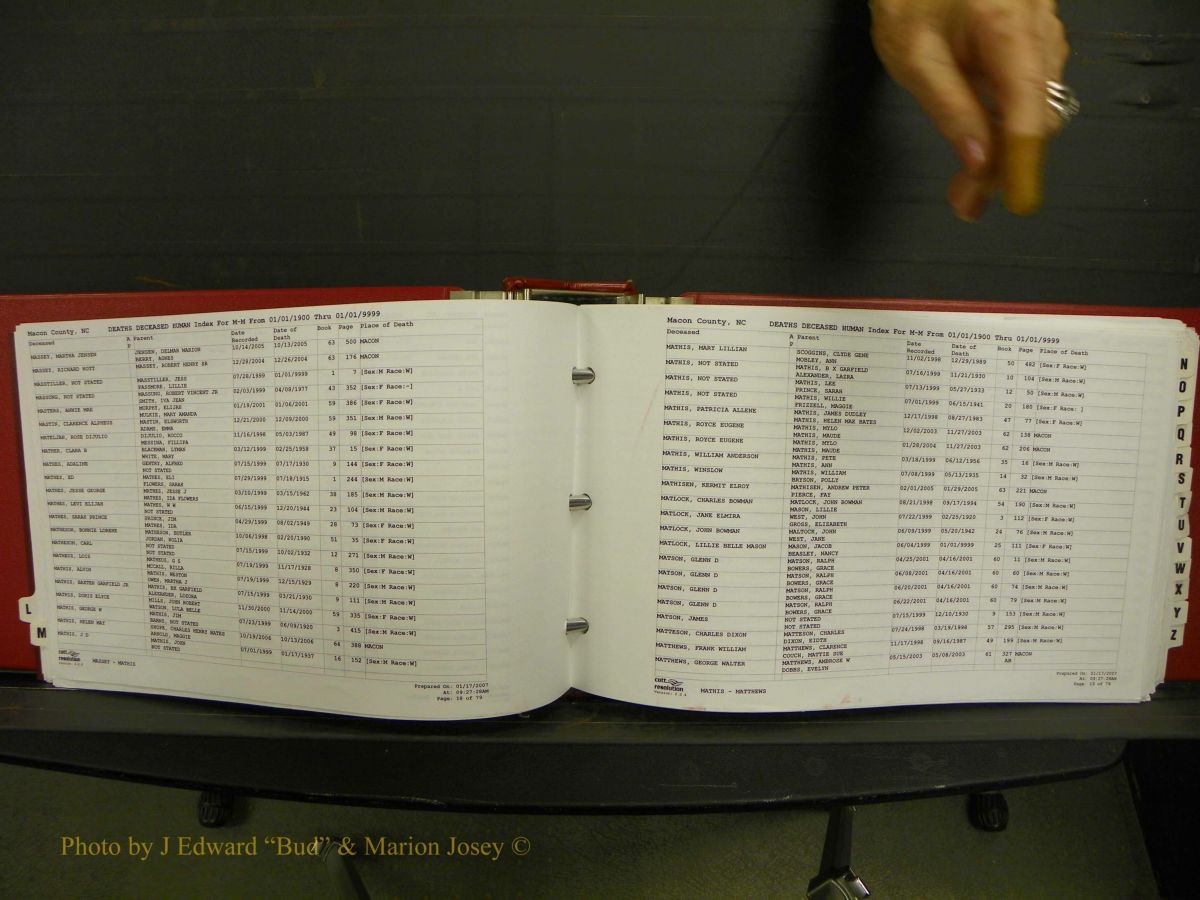 Macon County, NC DEATHS DECEASED HUMAN Index For M-M From 01/01/1900 Thru 01/01/9999
Deceased A Parent Date Recorded Date of Death Book Page Place of Death
MASSEY, MARTHA JENSEN JENSEN, DELMAR MARION 10/14/2005 10/13/2005 63 500 MACON
BERRY, AGNES
MASSEY, RICHARD HOYT MASSEY, ROBERT HENRY SR 12/28/2004 12/26/2004 63 176 MACON
MASSTILLER, NOT STATED MASSTILLER, JESS 07/28/1999 01/01/9999 1 7 [Sex:M Race:W]
PASSMORE, LILLIE
MASSUNG, NOT STATED MASSUNG, ROBERT VINCENT JR 02/03/1999 04/09/1977 43 352 [Sex:F Race:-]
SMITH, IVA JEAN
MASTERS, ANNIE MAE MURPHY, ELIJAH 01/19/2001 01/06/2001 59 386 [Sex:F Race:W]
WILKIE, MARY AMANDA
MASTIN, CLARENCE ALPHEUS MASTIN, ELSWORTH 12/21/2000 12/09/2000 59 351 [Sex:M Race:W]
ADAMS, EMMA
MATELJAN, ROSE DIJULIO DIJULIO, ROCCO 11/16/1998 05/03/1987 49 98 [Sex:F Race:W]
MESSINA, FILLIPA
MATHER, CLARA B BLACKMAN, LYMAN 03/12/1999 02/25/1958 37 15 [Sex:F Race:W]
WHITE, MARY
MATHES, ADALINE GENTRY, ALFRED 07/15/1999 07/17/1930 9 144 [Sex:F Race:W]
NOT STATED
MATHES, ED MATHES, ELI 07/29/1999 07/18/1915 1 244 [Sex:M Race:W]
FLOWERS, SARAH
MATHES, JESSE GEORGE MATHES, JESSE J 03/10/1999 03/15/1962 38 185 [Sex:M Race:W]
MATHES, IDA FLOWERS
MATHES, LEVI ELIJAH MATHES, W W 06/15/1999 12/20/1944 23 104 [Sex:M Race:W]
NOT STATED
MATHES, SARAH PRINCE PRINCE, JIM 04/29/1999 08/02/1949 28 73 [Sex:F Race:W]
MATHES, IDA
MATHESON, BONNIE LORENE MATHESON, BUTLER 10/06/1998 02/20/1990 51 35 [Sex:F Race:W]
JORDAN, NOLIA
MATHESON, CARL NOT STATED 07/15/1999 10/02/1932 12 271 [Sex:M Race:W]
NOT STATED
MATHEUS, LOIS MATHEUS, G S 07/19/1999 11/17/1928 8 350 [Sex:F Race:W]
MCCALL, RILLA
MATHIS, ALVIN MATHIS, WESTON 07/19/1999 12/15/1929 8 220 [Sex:M Race:W]
OWEN, MARTHA J
MATHIS, BAXTER GARFIELD JR MATHIS, BX GARFIELD 07/15/1999 03/21/1930 9 111 [Sex:M Race:W]
ALEXANDER, LODORA
MATHIS, DORIS ELVIE MILLS, JOHN ROBERT 11/30/2000 11/14/2000 59 335 [Sex:F Race:W]
WATSON, LULA BELLE
MATHIS, GEORGE W MATHIS, JIM 07/23/1999 06/09/1920 3 415 [Sex:M Race:W]
BARNS, NOT STATED
MATHIS, HELEN MAY SHOPE, CHARLES HENRY BATES 10/19/2006 10/13/2006 64 388 MACON
ARNOLD, MAGGIE
MATHIS, J D MATHIS, JOHN 07/01/1999 01/17/1937 16 152 [Sex:M Race:W]
NOT STATED
cott resolution MASSEY - MATHIS
Prepared On: 01/17/2007
At: 09:27:28AM
Page: 18 of 79
L
M
Macon County, NC DEATHS DECEASED HUMAN Index For M-M From 01/01/1900 Thru 01/01/9999
Deceased A Parent Date Recorded Date of Death Book Page Place of Death
P
MATHIS, MARY LILLIAN SCOGGINS, CLYDE GENE 11/02/1998 12/29/1989 50 482 [Sex:F Race:W]
MOBLEY, ANN
MATHIS, NOT STATED MATHIS, B X GARFIELD 07/16/1999 11/21/1930 10 104 [Sex:M Race:W]
ALEXANDER, LAIRA
MATHIS, NOT STATED MATHIS, LEE 07/13/1999 05/27/1933 12 50 [Sex:M Race:W]
PRINCE, SARAH
MATHIS, NOT STATED MATHIS, WILLIE 07/01/1999 06/15/1941 20 180 [Sex:F Race: ]
FRIZZELL, MAGGIE
MATHIS, PATRICIA ALLENE MATHIS, JAMES DUDLEY 12/17/1998 08/27/1983 47 77 [Sex:F Race:W]
MATHIS, HELEN MAE BATES
MATHIS, ROYCE EUGENE MATHIS, MYLO 12/02/2003 11/27/2003 62 138 MACON
MATHIS, MAUDE
MATHIS, ROYCE EUGENE MATHIS, MYLO 01/28/2004 11/27/2003 62 206 MACON
MATHIS, MAUDE
MATHIS, WILLIAM ANDERSON MATHIS, PETE 03/18/1999 06/12/1956 35 16 [Sex:M Race:W]
MATHIS, ANN
MATHIS, WINSLOW MATHIS, WILLIAM 07/08/1999 05/13/1935 14 32 [Sex:M Race:W]
BRYSON, POLLY
MATHISEN, KERMIT ELROY MATHISEN, ANDREW PETER 02/01/2005 01/29/2005 63 221 MACON
PIERCE, FAY
MATLOCK, CHARLES BOWMAN MATLOCK, JOHN BOWMAN 08/21/1998 03/17/1994 54 190 [Sex:M Race:W]
MASON, LILLIE
MATLOCK, JANE ELMIRA WEST, JOHN 07/22/1999 02/25/1920 3 112 [Sex:F Race:W]
GROSS, ELIZABETH
MATLOCK, JOHN BOWMAN MALTOCK, JOHN 06/09/1999 05/20/1942 24 76 [Sex:M Race:W]
WEST, JANE
MATLOCK, LILLIE BELLE MASON MASON, JACOB 06/04/1999 01/01/9999 25 111 [Sex:F Race:W]
BEASLEY, NANCY
MATSON, GLENN D MATSON, RALPH 04/25/2001 04/16/2001 60 11 [Sex:M Race:W]
BOWERS, GRACE
MATSON, GLENN D MATSON, RALPH 06/08/2001 04/16/2001 60 60 [Sex:M Race:W]
BOWERS, GRACE
MATSON, GLENN D MATSON, RALPH 06/20/2001 04/16/2001 60 74 [Sex:M Race:W]
BOWERS, GRACE
MATSON, GLENN D MATSON, RALPH 06/22/2001 04/16/2001 60 79 [Sex:M Race:W]
BOWERS, GRACE
MATSON, JAMES NOT STATED 07/15/1999 12/10/1930 9 153 [Sex:M Race:W]
NOT STATED
MATTESON, CHARLES DIXON MATTESON, CHARLES 07/24/1998 03/19/1998 57 295 [Sex:M Race:W]
DIXON, EIDTH
MATTHEWS, FRANK WILLIAM MATTHEWS, CLARENCE 11/17/1998 09/16/1987 49 199 [Sex:M Race:W]
COUCH, MATTIE SUE
MATTHEWS, GEORGE WALTER MATTHEWS, AMBROSE W 05/15/2003 05/08/2003 61 327 MACON
DOBBS, EVELYN AB
cott resolution MATHIS - MATTHEWS
Prepared On: 01/17/2007
At: 09:27:28AM
Page: 19 of 79
N
O
P
Q
R
S
T
U
V
W
X
Y
Z
Photo by J Edward “Bud” & Marion Josey ©